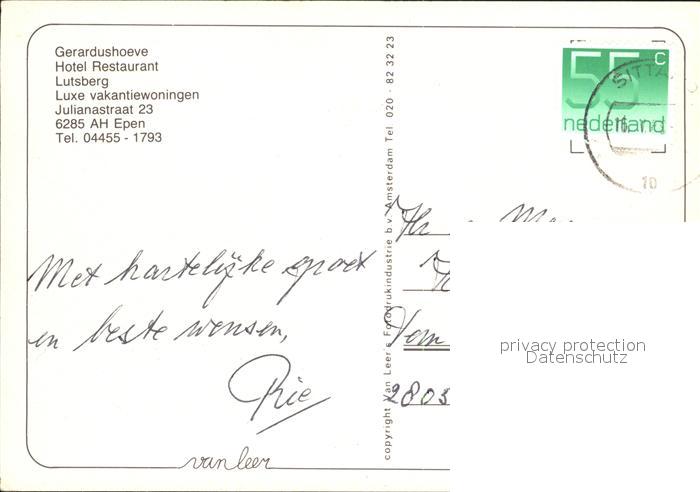 Gerardushoeve
Hotel Restaurant
Lutsberg
Luxe vakantiewoningen
Julianastraat 23
6285 AH Epen
Tel. 04455 - 1793
Met hartelijke groet
en beste wensen,
Rie
van leer
copyright Van Leer's Fotodrukindustrie b.v. Amsterdam Tel. 020 - 82 32 23
55 c
nederland
SITTA
10
2803
privacy protection
Datenschutz